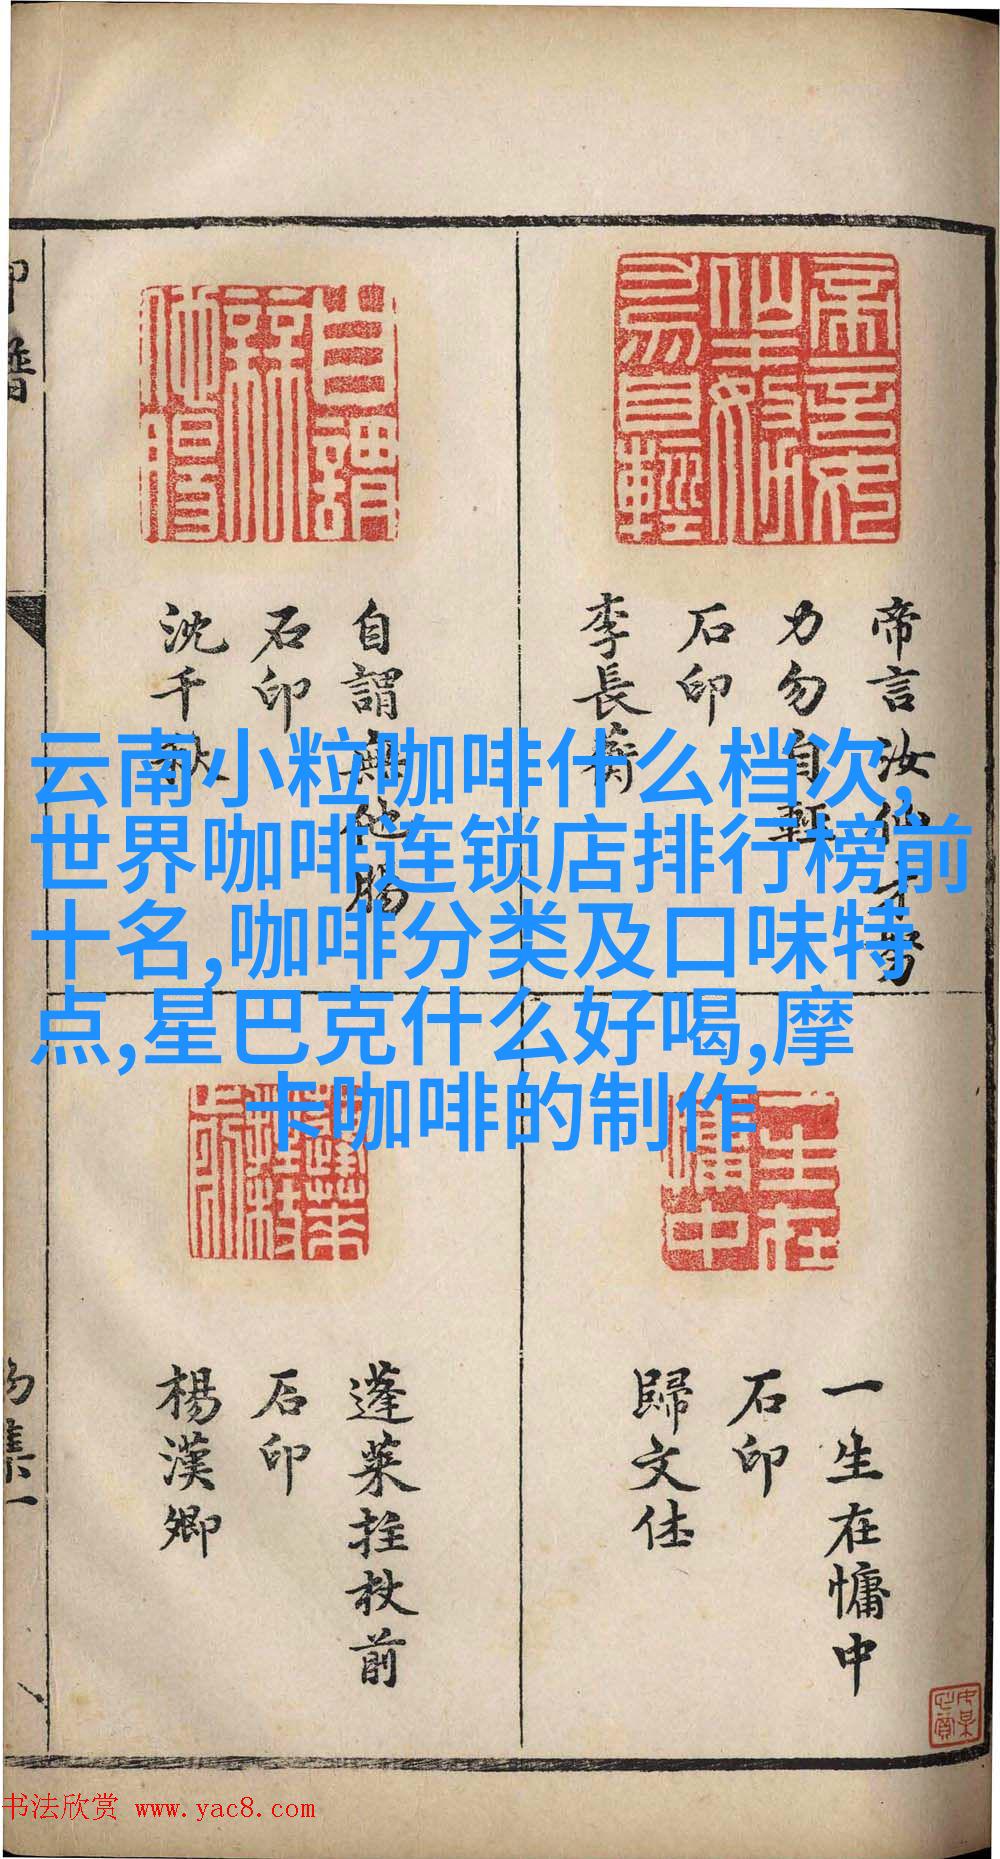 帝言汝仙才努
力勿自輕
石印
李長蘅
自謂無他腸
石印
沈千秋
云南小粒咖啡什么档次,
世界咖啡连锁店排行榜前
十名,咖啡分类及口味特
点,星巴克什么好喝,摩
卡咖啡的制作
一生在慵中
石印
歸文休
蓬萊拄杖前
石印
楊漢卿
初集一
书法欣赏 www.yac8.com